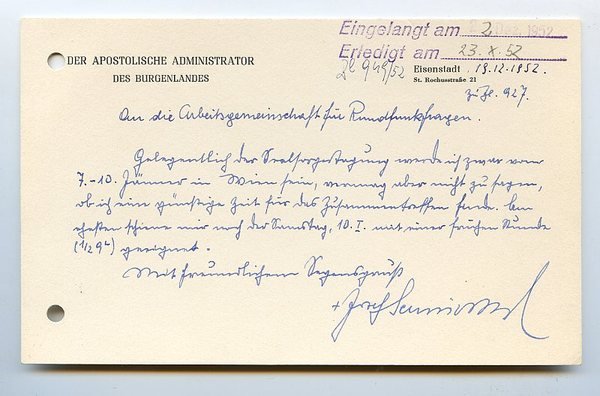 Eingelangt am 2. 1952
Erledigt am 23. X. 52
DER APOSTOLISCHE ADMINISTRATOR
DES BURGENLANDES
Zl 949/52
Eisenstadt, 19.12.1952.
St. Rochusstraße 21
zu Zl. 927.
An die Arbeitsgemeinschaft für Rundfunkfragen.
Gelegentlich der Seelsorgertagung werde ich zwar vom
7.-10. Jänner in Wien sein, vermag aber nicht zu sagen,
ob ich eine günstige Zeit für das Zusammentreffen finde. Am
ehesten schiene mir noch der Samstag, 10. I. mit einer frühen Stunde
(1/2 9h) geeignet.
Mit freundlichem Segensgruß
+ Josef